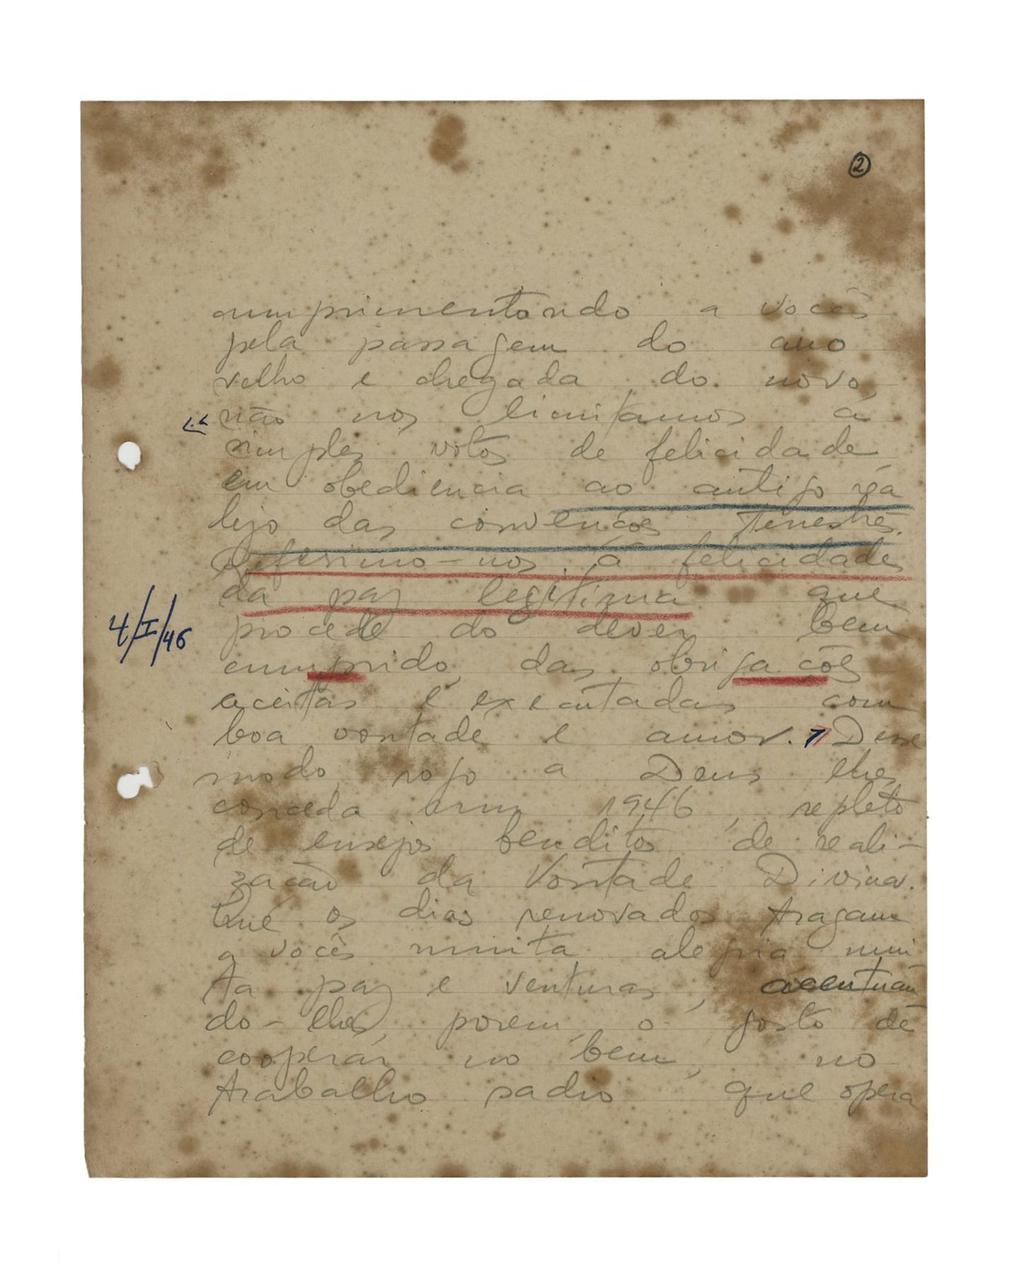 ②
cumprimentando a vocês
pela passagem do ano
velho e chegada do novo,
« não nos limitamos a
simples votos de felicidade
em obediencia ao antigo rea
lejo das convenções terrestres.
Referimo-nos á felicidade
da paz legitima que
4/I/46
procede do dever bem
cumprido, das obrigações
aceitas e executadas com
boa vontade e amor. » Desse
modo rogo a Deus lhes
conceda um 1946, repleto
de ensejos benditos de reali-
zação da Vontade Divina.
Que os dias renovados tragam
a vocês muita alegria mui
ta paz e venturas, acentuan
do-lhes, porem, o gosto de
cooperar no bem, no
trabalho sadio que opera